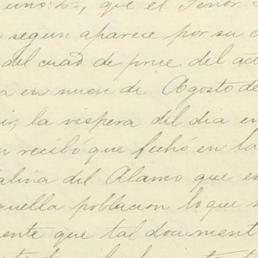 uno: 2a, que el Señor
segun aparece por su c
del cuad de pr del act
a en union de Agosto de
ir, la vispera del dia en
n recibo que fechó en la
alina del Alamo que e
quella poblacion lo que
ente que tal document